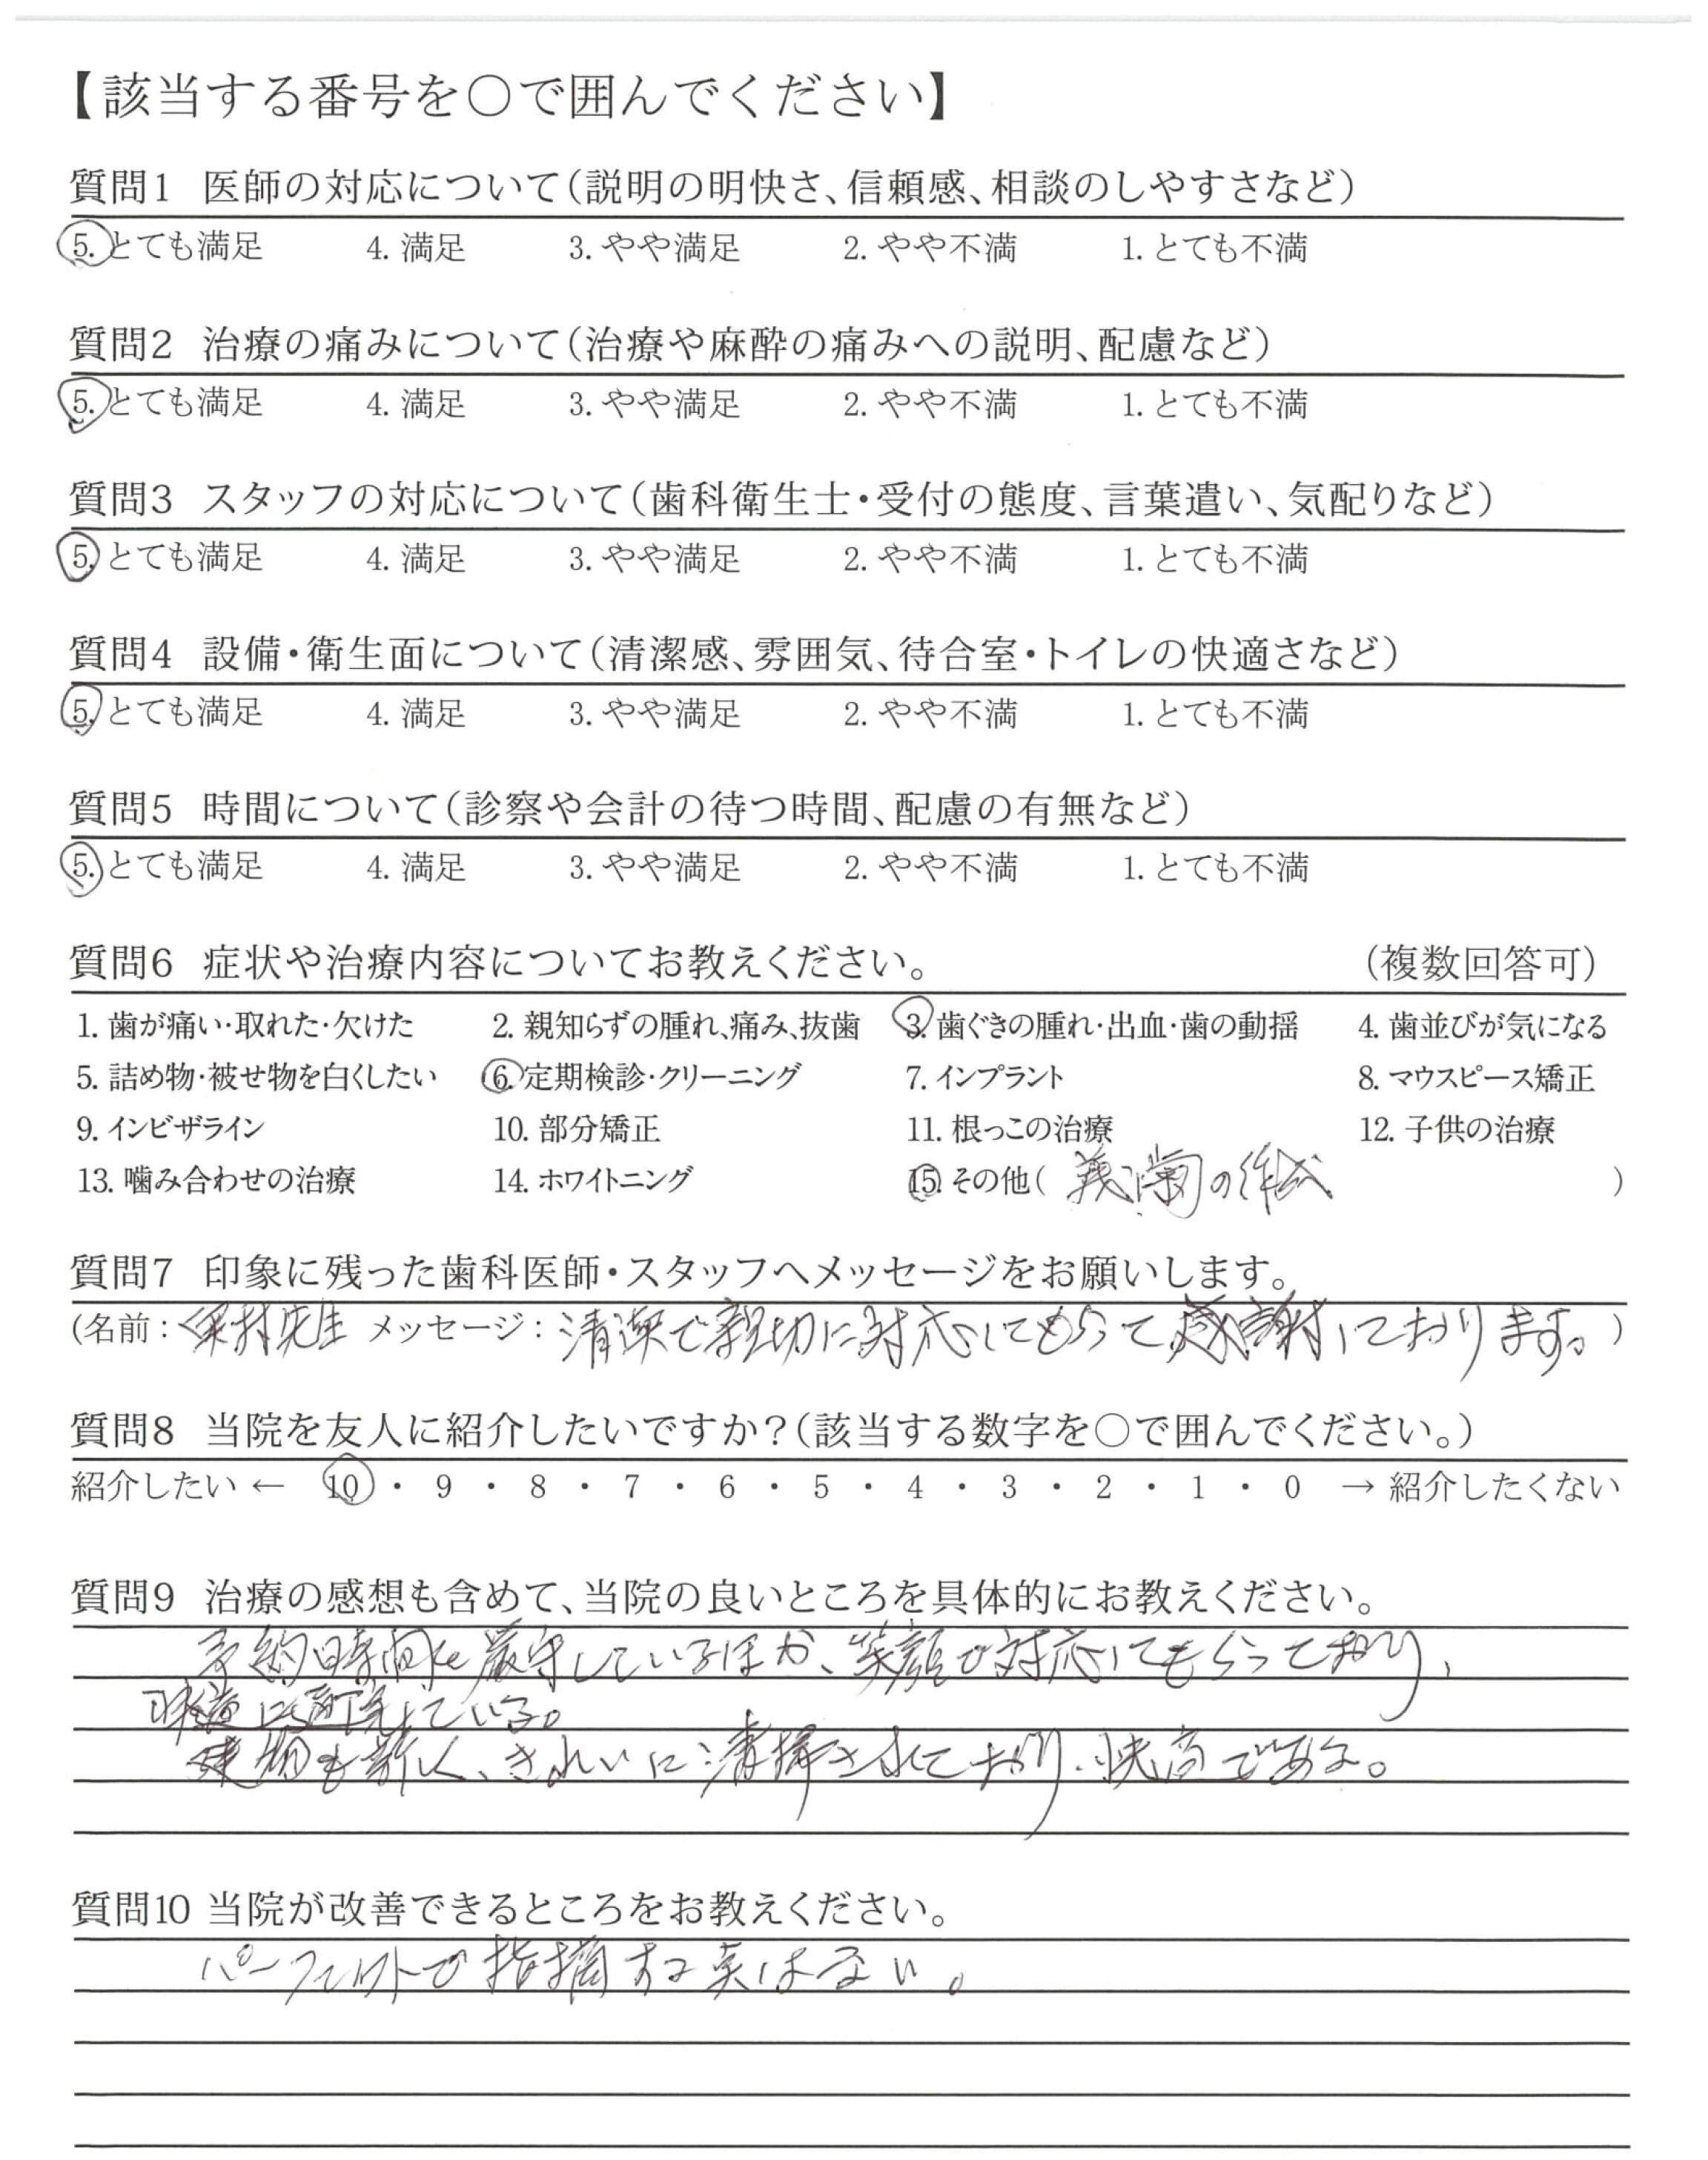 【該当する番号を○で囲んでください】
質問1 医師の対応について(説明の明快さ、信頼感、相談のしやすさなど)
5. とても満足 4. 満足 3. やや満足 2. やや不満 1. とても不満
質問2 治療の痛みについて(治療や麻酔の痛みへの説明、配慮など)
5. とても満足 4. 満足 3. やや満足 2. やや不満 1. とても不満
質問3 スタッフの対応について(歯科衛生士・受付の態度、言葉遣い、気配りなど)
5. とても満足 4. 満足 3. やや満足 2. やや不満 1. とても不満
質問4 設備・衛生面について(清潔感、雰囲気、待合室・トイレの快適さなど)
5. とても満足 4. 満足 3. やや満足 2. やや不満 1. とても不満
質問5 時間について(診察や会計の待つ時間、配慮の有無など)
5. とても満足 4. 満足 3. やや満足 2. やや不満 1. とても不満
質問6 症状や治療内容についてお教えください。 (複数回答可)
1. 歯が痛い・取れた・欠けた 2. 親知らずの腫れ、痛み、抜歯 3. 歯ぐきの腫れ・出血・歯の動揺 4. 歯並びが気になる
5. 詰め物・被せ物を白くしたい 6. 定期検診・クリーニング 7. インプラント 8. マウスピース矯正
9. インビザライン 10. 部分矯正 11. 根っこの治療 12. 子供の治療
13. 噛み合わせの治療 14. ホワイトニング 15. その他( 義歯の作成 )
質問7 印象に残った歯科医師・スタッフへメッセージをお願いします。
(名前: 先生 メッセージ: で親切に対応してもらって感謝しております。)
質問8 当院を友人に紹介したいですか?(該当する数字を○で囲んでください。)
紹介したい ← 10 ・ 9 ・ 8 ・ 7 ・ 6 ・ 5 ・ 4 ・ 3 ・ 2 ・ 1 ・ 0 → 紹介したくない
質問9 治療の感想も含めて、当院の良いところを具体的にお教えください。
予約時間を厳守しているほか、笑顔で対応してもらっており、
している。
建物も新しく、きれいに清掃されており、快適である。
質問10 当院が改善できるところをお教えください。
パーフェクトで指摘する点はない。